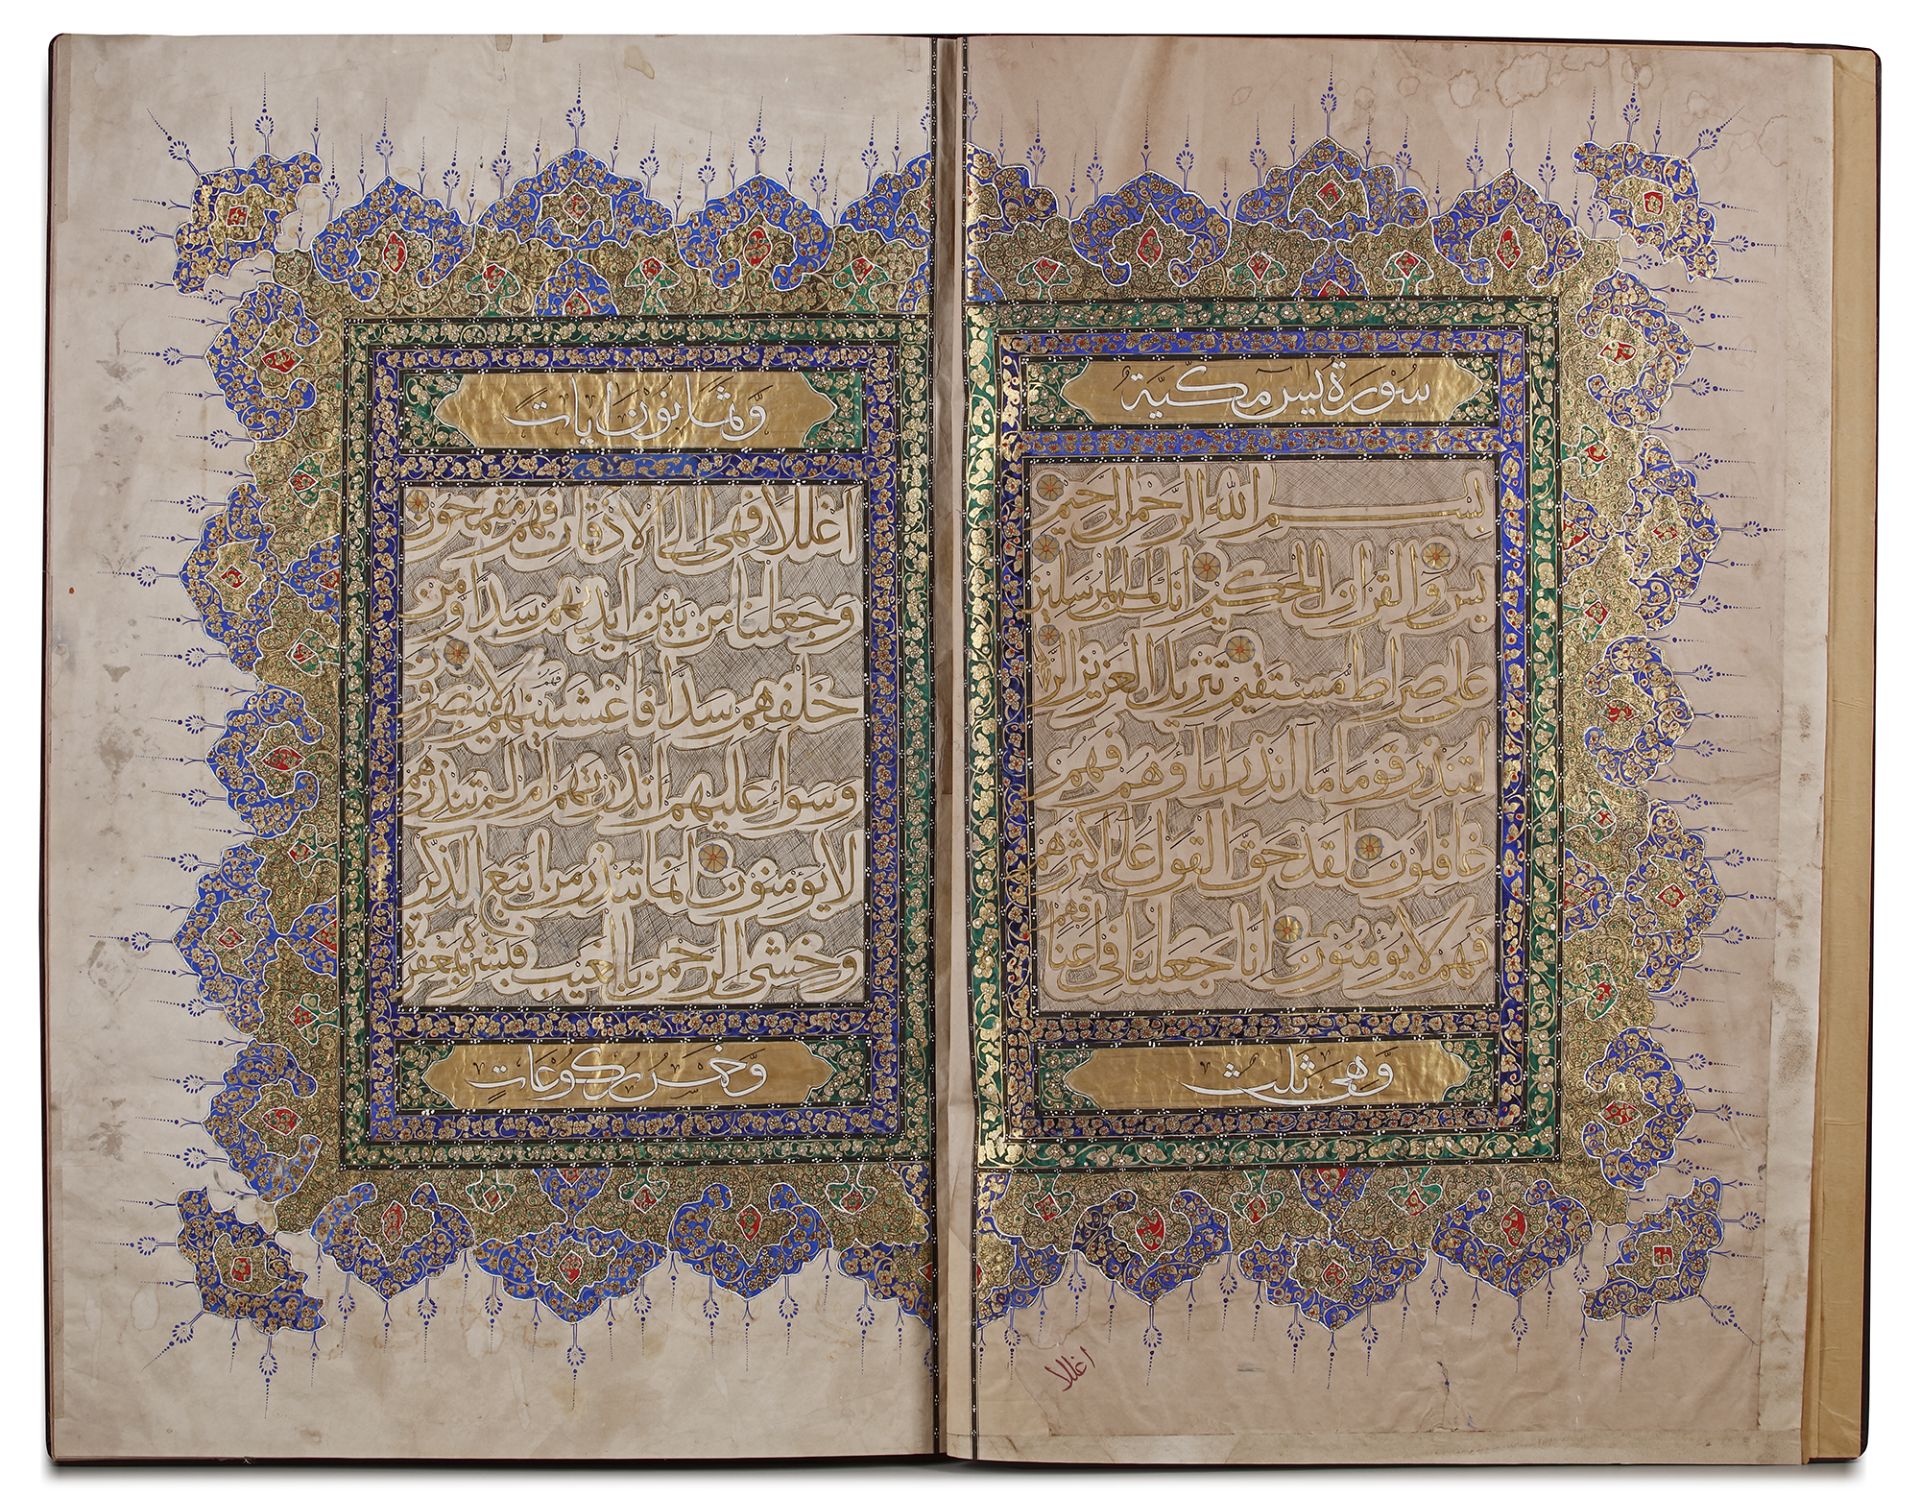 سورة يس مكية
بسم الله الرحمن الرحيم
يس والقران الحكيم انك لمن المرسلين
على صراط مستقيم تنزيل العزيز الر
لتنذر قوما ما انذر اباؤهم فهم
غافلون لقد حق القول على اكثرهم
فهم لا يؤمنون انا جعلنا فى اعنا قهم
وهى ثلث
اغلالا
وثمانون ايات
اغلالا فهى الى الاذقان فهم مقمحون
وجعلنا من بين ايديهم سدا ومن
خلفهم سدا فاغشيناهم فهم لا يبصرون
وسواء عليهم انذرتهم ام لم تنذرهم
لا يؤمنون انما تنذر من اتبع الذكر
وخشى الرحمن بالغيب فبشره بمغفرة
وخمس ركوعات